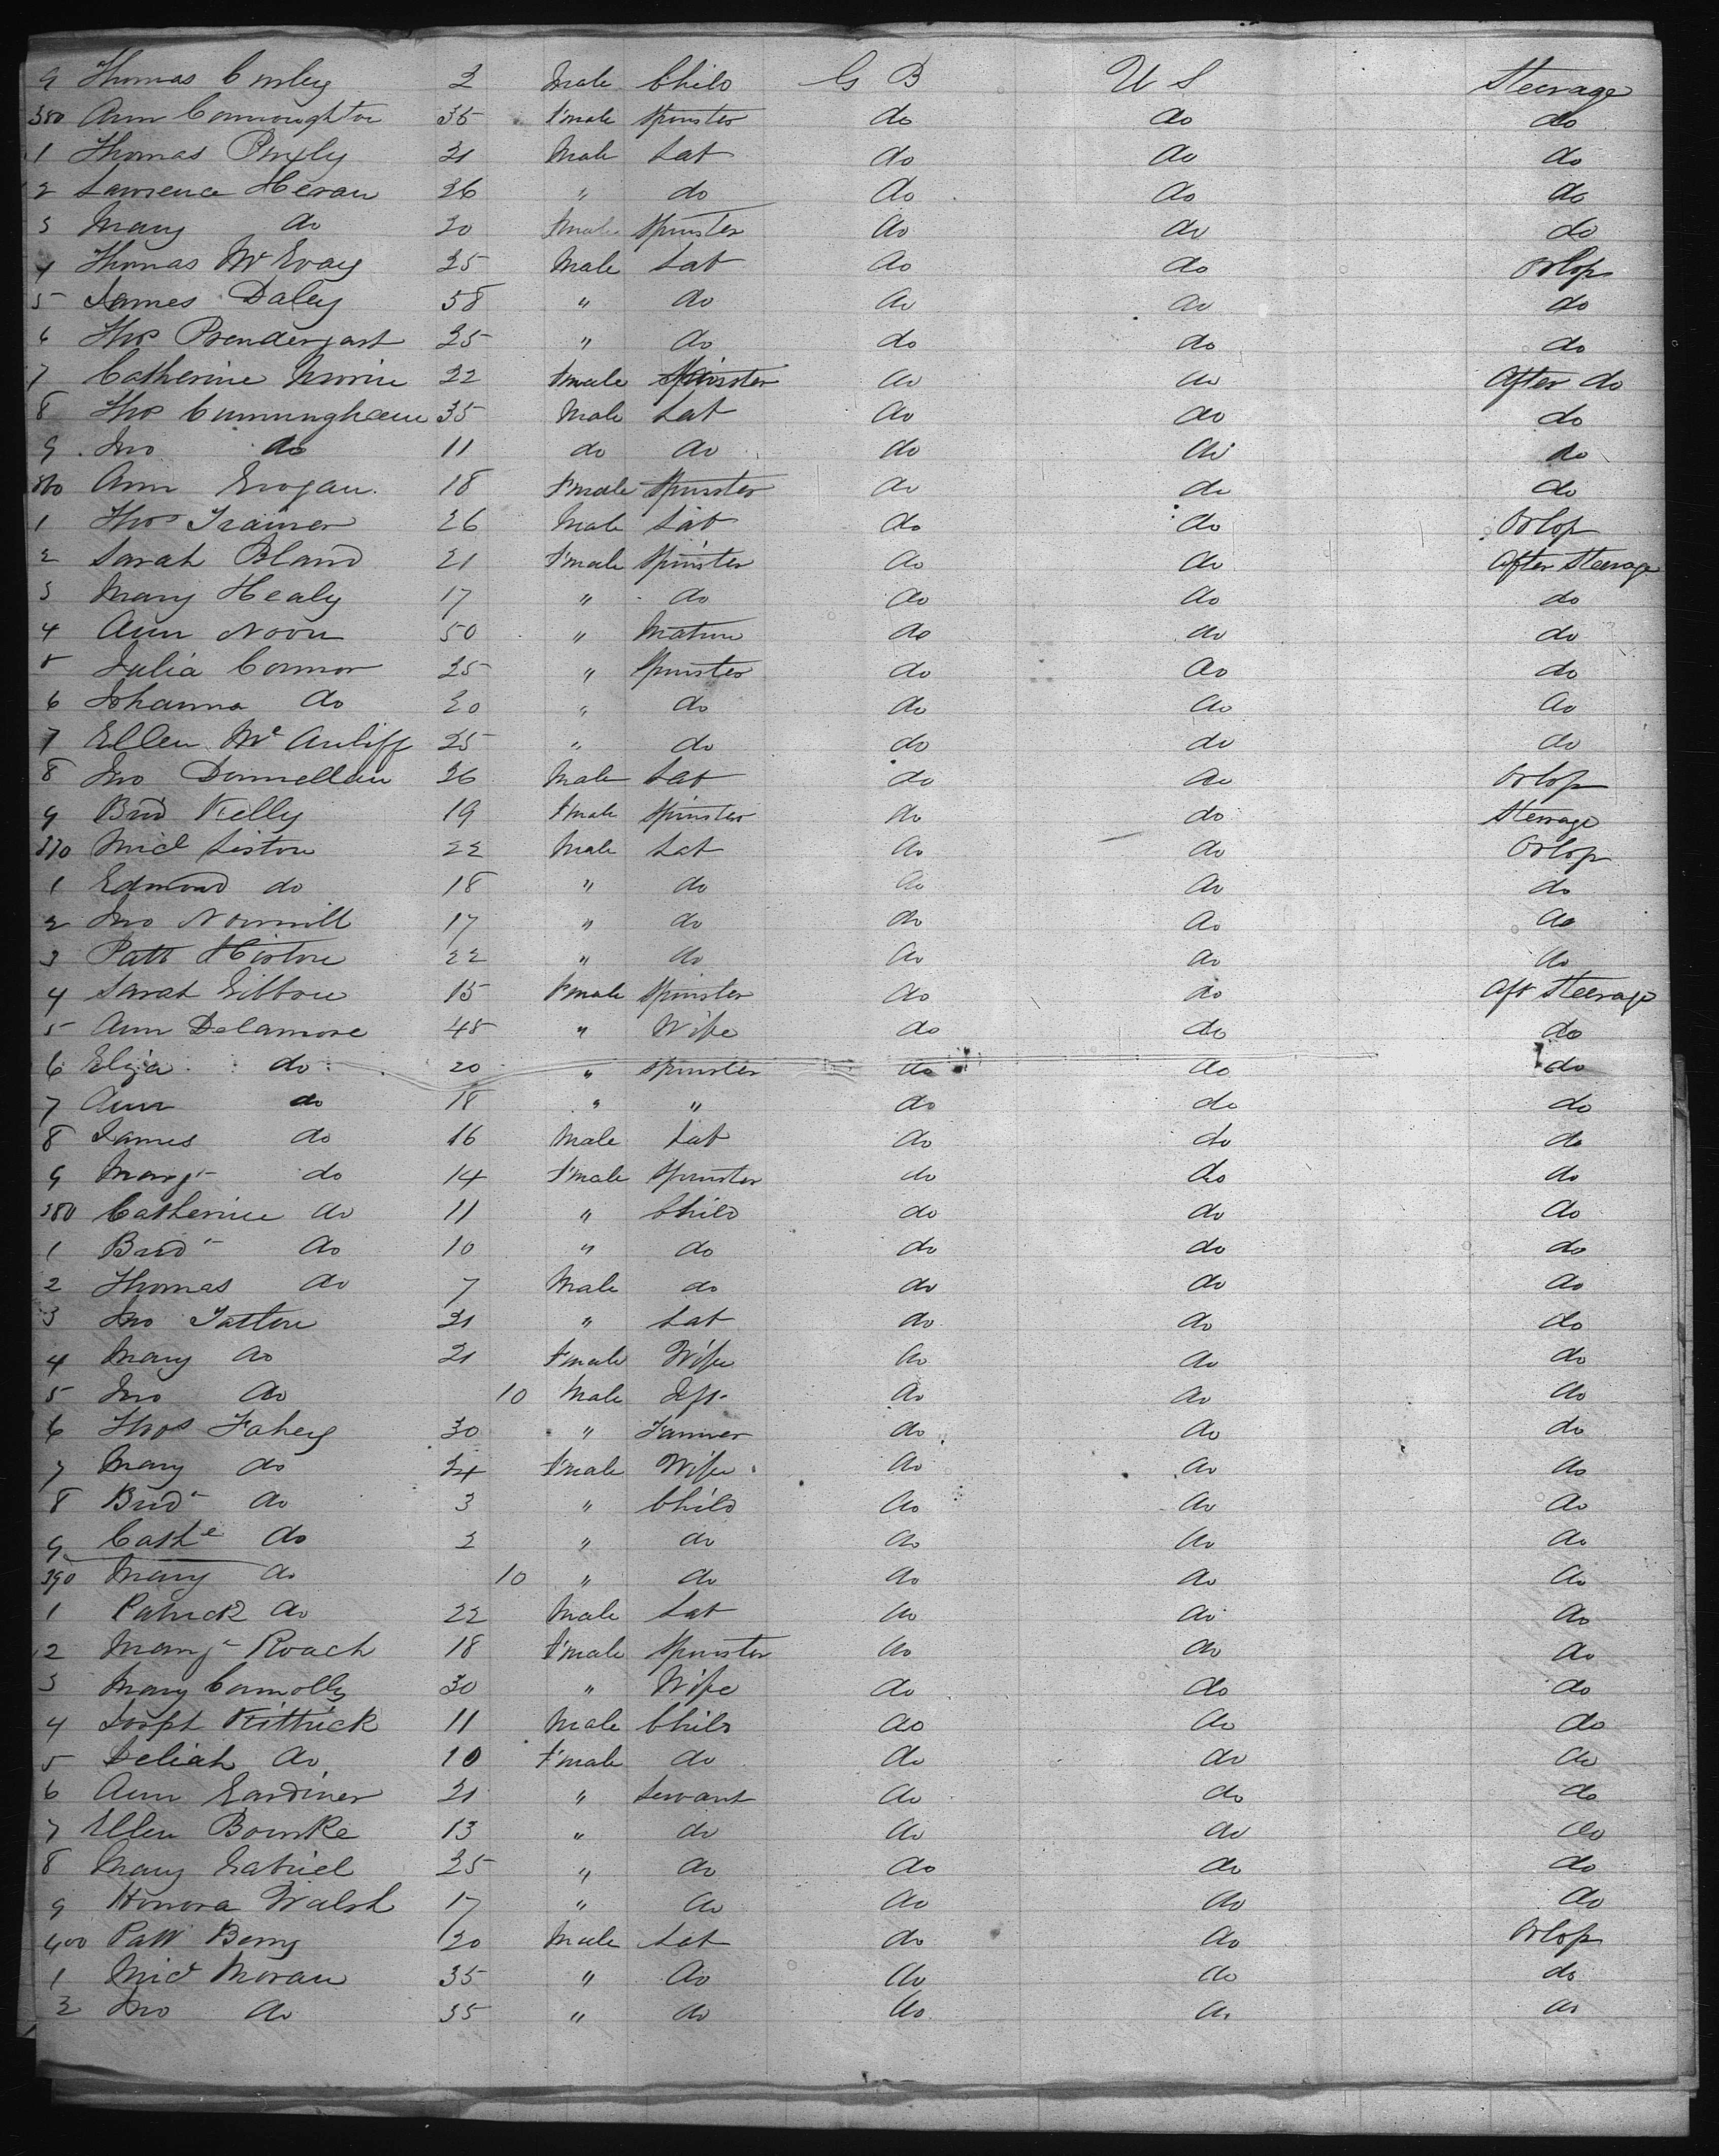 9 Thomas Conley 2 Male Child G B U S Steerage
350 Ann Connoughton 35 Fmale Spinster do do do
1 Thomas 21 Male Lab do do do
2 Lawrence Heran 26 " do do do do
3 Mary do 20 Fmale Spinster do do do
4 Thomas Mc Evoy 25 Male Lab do do Orlop
5 James Daley 58 " do do do do
6 Thos Prendergast 25 " do do do do
7 Catherine 22 Fmale Spinster do do After do
8 Thos Cunningham 35 Male Lab do do do
9 Jno do 11 do do do do do
360 Ann Grogan 18 Fmale Spinster do do do
1 Thos Trainer 26 Male Lab do do Orlop
2 Sarah Bland 21 Fmale Spinster do do After Steerage
3 Mary Healy 17 " do do do do
4 Ann Noon 50 " Matron do do do
5 Julia Connor 25 " Spinster do do do
6 Johanna do 20 " do do do do
7 Ellen Mc Auliff 25 " do do do do
8 Jno Donnellan 26 Male Lab do do Orlop
9 Brid Kelly 19 Fmale Spinster do do Sterrage
370 Micl Liston 22 Male Lab do do Orlop
1 Edmond do 18 " do do do do
2 Jno 17 " do do do do
3 Patt Histon 22 " do do do do
4 Sarah Gibbon 15 Fmale Spinster do do Aft Steerage
5 Ann Delamore 45 " Wife do do do
6 Eliza do 20 " Spinster do do do
7 Ann do 18 " " do do do
8 James do 16 Male Lab do do do
9 Margt do 14 Fmale Spinster do do do
380 Catherine do 11 " Child do do do
1 Brid do 10 " do do do do
2 Thomas do 7 Male do do do do
3 Jno Tatton 21 " Lab do do do
4 Mary do 21 Fmale Wife do do do
5 Jno do 10 Male Ift do do do
6 Thos Fahey 30 " Farmer do do do
7 Mary do 24 Fmale Wife do do do
8 Brid do 3 " Child do do do
9 Cathe do 2 " do do do do
390 Mary do 10 " do do do do
1 Patrick do 22 Male Lab do do do
2 Margt Roach 18 Fmale Spinster do do do
3 Mary Connolly 30 " Wife do do do
4 Josph Kittrick 11 Male Child do do do
5 Deliah do 10 Fmale do do do do
6 Ann Gardiner 21 " Servant do do do
7 Ellen Bourke 13 " do do do do
8 Mary Gabriel 25 " do do do do
9 Honora Walsh 17 " do do do do
400 Patt Berry 20 Male Lab do do Orlop
1 Micl Moran 35 " do do do do
2 Jno do 35 " do do do do